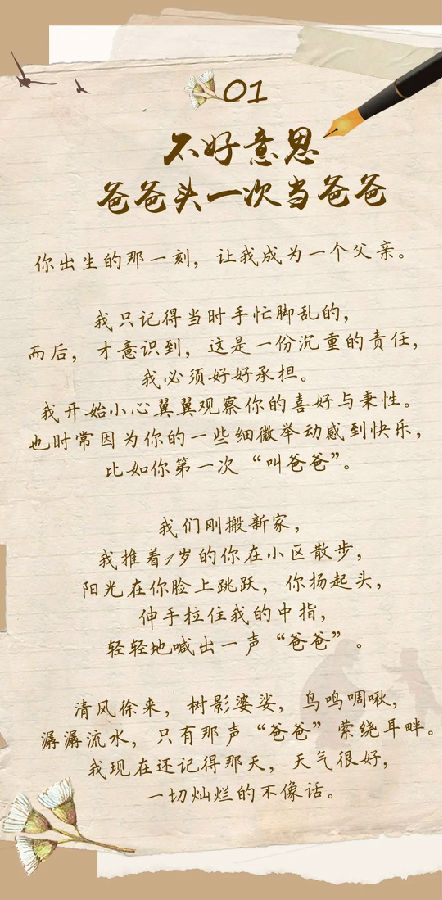 01
不好意思
爸爸头一次当爸爸
你出生的那一刻，让我成为一个父亲。
我只记得当时手忙脚乱的，
而后，才意识到，这是一份沉重的责任，
我必须好好承担。
我开始小心翼翼观察你的喜好与秉性。
也时常因为你的一些细微举动感到快乐，
比如你第一次“叫爸爸”。
我们刚搬新家，
我推着1岁的你在小区散步，
阳光在你脸上跳跃，你扬起头，
伸手拉住我的中指，
轻轻地喊出一声“爸爸”。
清风徐来，树影婆娑，鸟鸣啁啾，
潺潺流水，只有那声“爸爸”萦绕耳畔。
我现在还记得那天，天气很好，
一切灿烂的不像话。